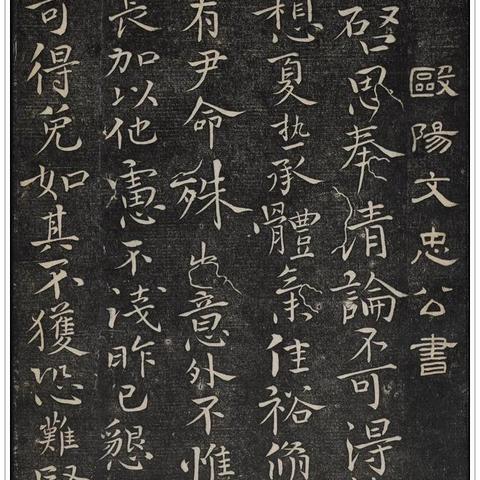 歐陽文忠公書
啓思奉清論不可得
想夏熱承體氣佳裕脩
有尹命殊出意外不惟
長加以他慮不淺昨已懇
可得免如其不獲恐難堅